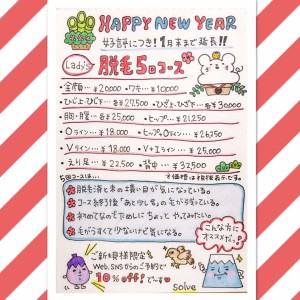 HAPPY NEW YEAR
好評につき！1月末まで延長!!
Lady's 脱毛5回コース
・全顔… ¥20000 ・ワキ… ¥10000
・ひじ上・ひじ下… 各¥27,500 ・ひざ上・ひざ下… 各¥30,000
・胸・腹… ¥25,000 ・ヒップ… ¥21,250
・Oライン… ¥18,000 ・ヒップOライン… ¥26,250
・Vライン… ¥18,000 ・V+Iライン… ¥25,000
・えり足… ¥22,500 ・背中… ¥37,500
※価格は税抜表示です。
5回コースは…
脱毛済と未の濃い目が気になっている。
コース終了後「あと少し毛」の毛が残っている。
初めてなのでためしにちょっとやってみたい。
毛がうすくて少ないけど気になる。
こんな方に
オススメだッ？
ご新規様限定
Web、SNSからのご予約で
10% off!です
solve